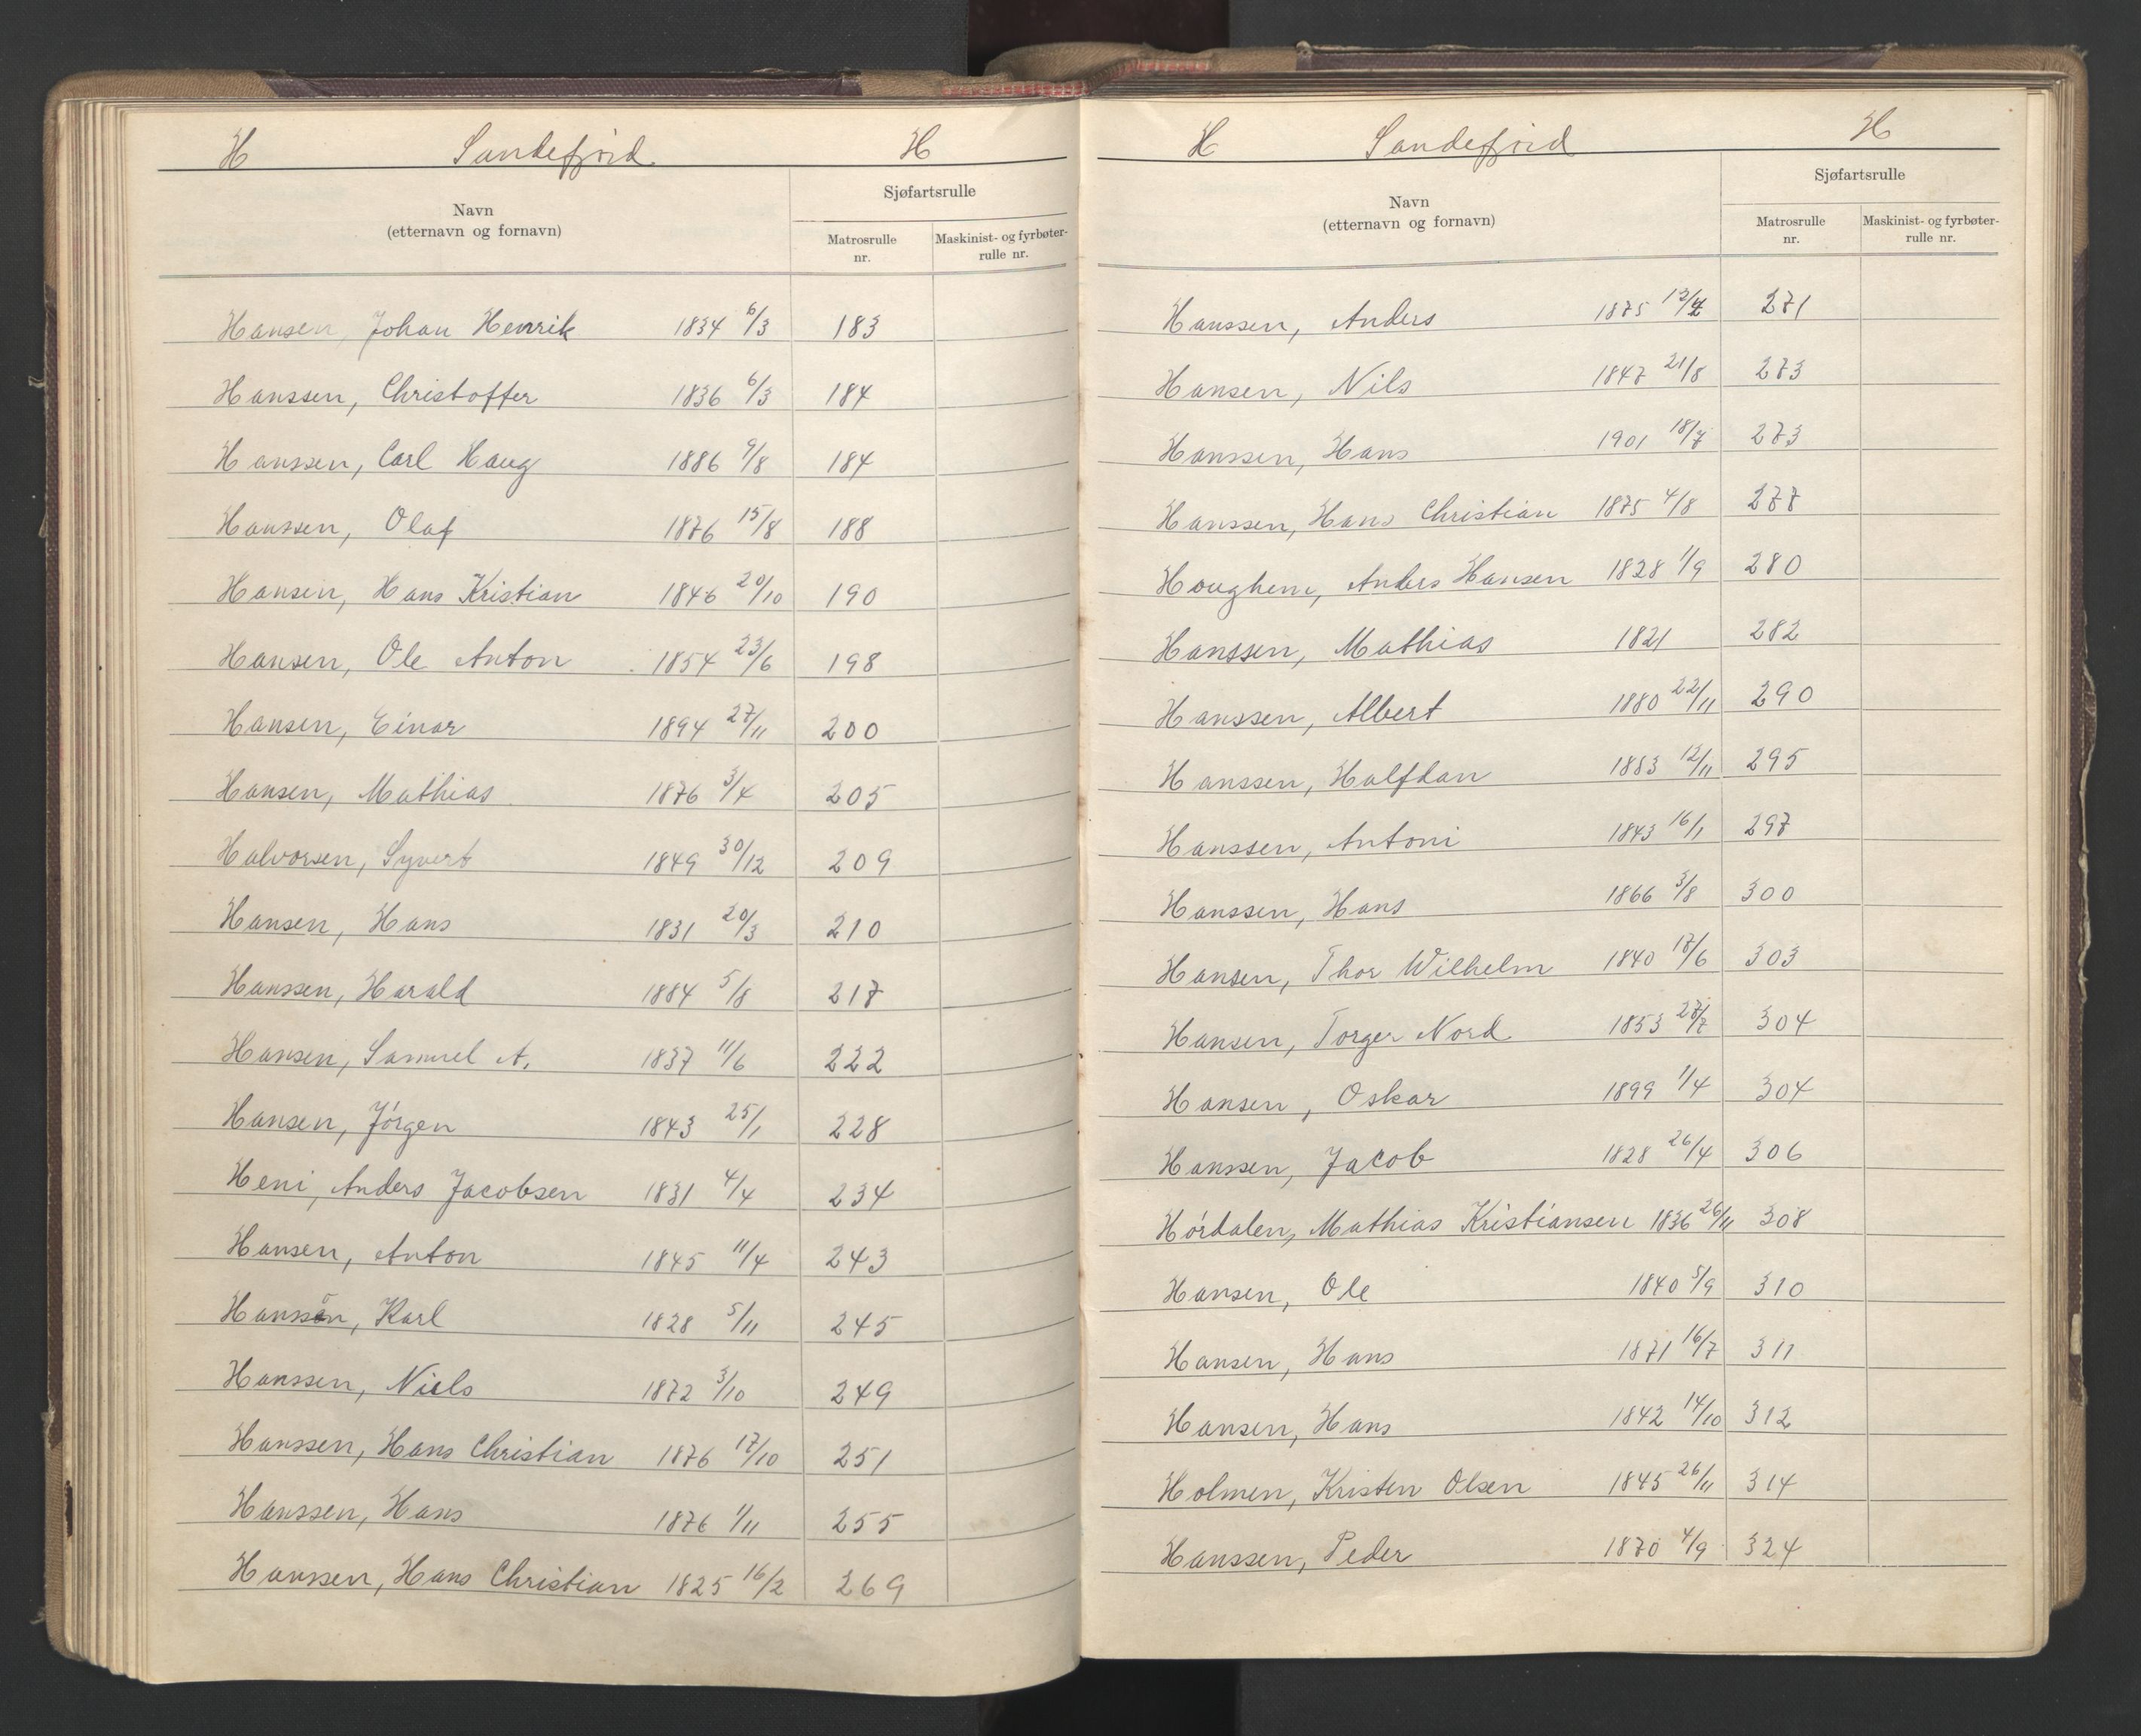 H Sandefjord H
Navn
(etternavn og fornavn)
Sjøfartsrulle
Matrosrulle nr.
Maskinist- og fyrbøter-rulle nr.
Hansen, Johan Henrik 1834 6/3 183
Hanssen, Christoffer 1836 6/3 184
Hanssen, Carl Haug 1886 9/8 184
Hanssen, Olaf 1876 15/8 188
Hansen, Hans Kristian 1846 20/10 190
Hansen, Ole Anton 1854 23/6 198
Hansen, Einar 1894 27/11 200
Hansen, Mathias 1876 3/4 205
Halvorsen, Syvert 1849 30/12 209
Hansen, Hans 1831 20/3 210
Hanssen, Harald 1884 5/8 217
Hansen, Samuel A. 1837 11/6 222
Hansen, Jörgen 1843 25/1 228
Heni, Anders Jacobsen 1831 4/4 234
Hansen, Anton 1845 11/4 243
Hanssen, Karl 1828 5/11 245
Hanssen, Niels 1872 3/10 249
Hanssen, Hans Christian 1876 17/10 251
Hanssen, Hans 1876 1/11 255
Hanssen, Hans Christian 1825 16/2 269
H Sandefjord H
Navn
(etternavn og fornavn)
Sjøfartsrulle
Matrosrulle nr.
Maskinist- og fyrbøter-rulle nr.
Hanssen, Anders 1875 271
Hansen, Nils 1847 21/8 273
Hanssen, Hans 1901 18/7 273
Hanssen, Hans Christian 1875 4/8 277
Anders Hansen 1828 1/9 280
Hanssen, Mathias 1821 282
Hanssen, Albert 1880 22/11 290
Hanssen, Halfdan 1883 12/11 295
Hanssen, Antoni 1843 16/1 297
Hanssen, Hans 1866 3/8 300
Hansen, Thor Wilhelm 1840 17/6 303
Hansen, Torger Nord 1853 304
Hansen, Oskar 1899 1/4 304
Hanssen, Jacob 1828 26/4 306
Hórdalen, Mathias Kristiansen 1836 26/11 308
Hansen, Ole 1840 5/9 310
Hansen, Hans 1871 16/7 311
Hansen, Hans 1842 14/10 312
Holmen, Kristen Olsen 1845 26/11 314
Hanssen, Peder 1870 4/9 324